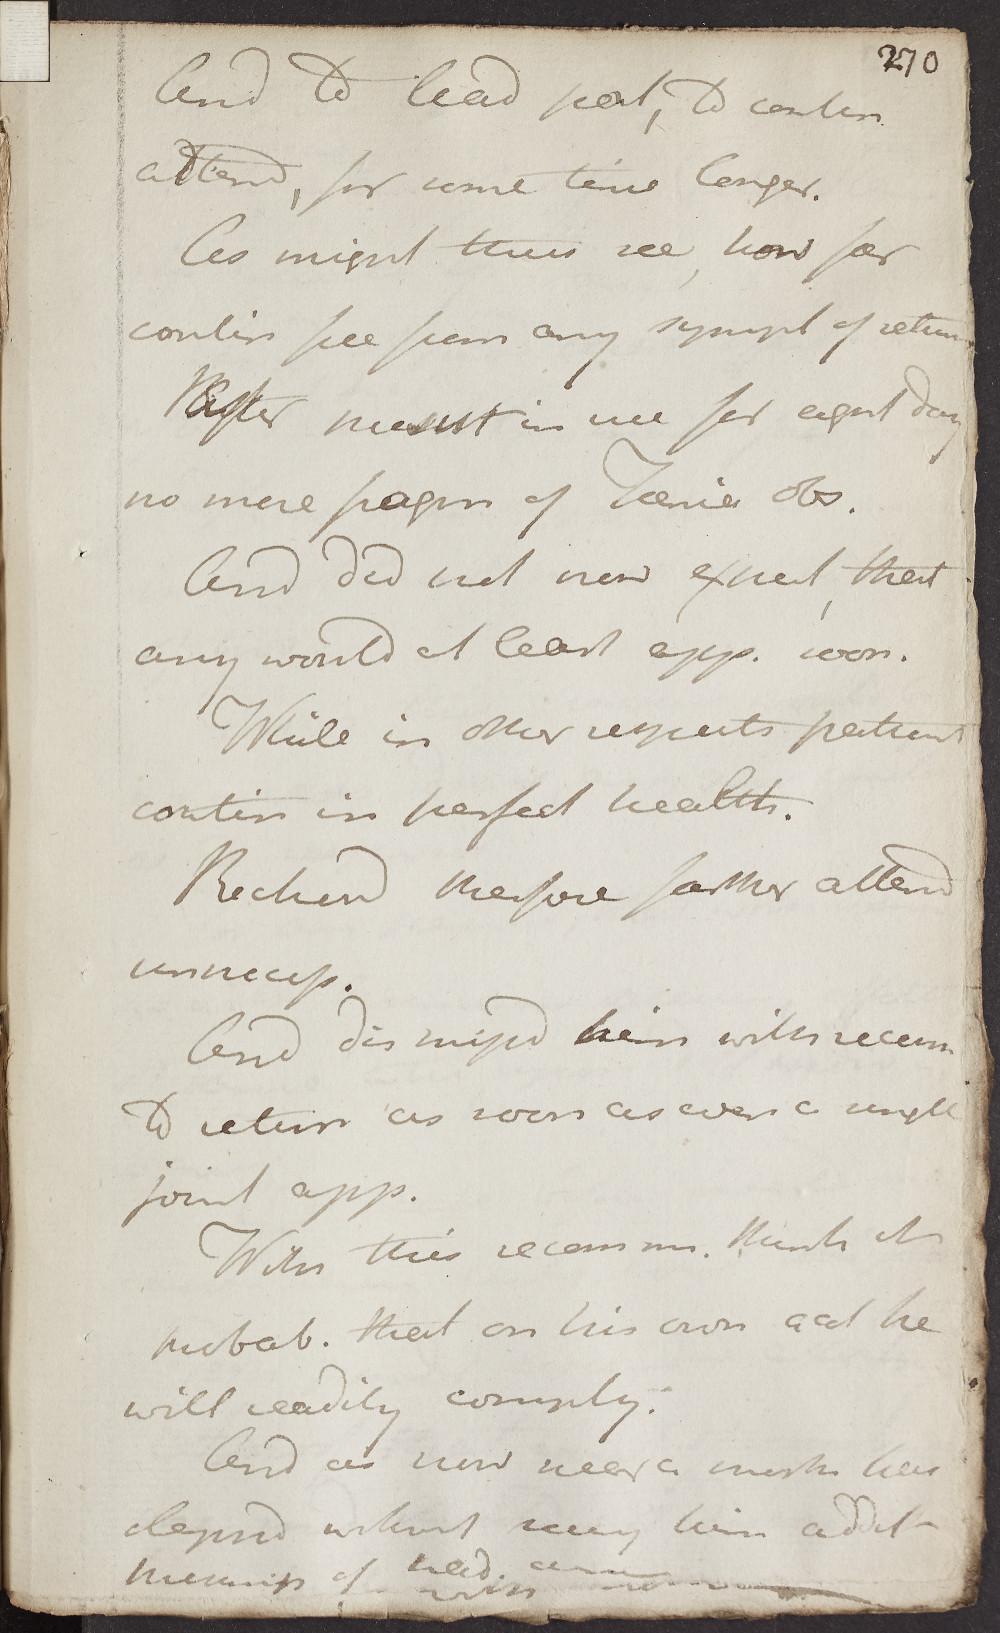 270
And to lead pat, to contin
attend, for some time longer.
As might thus see, how far
contin free from any sympt of return
After in use for eight day
no more fragm of Taenia obs.
And did not now expect, that
any would at least app. soon.
While in other respects patient
contin in perfect health.
Reckond therefore farther attend
unnecess.
And dismissd him with recom
to return as soon as even a single
joint app.
With this recomm. think it
probab. that on his own acct he
will readily comply.
And as now near a month has
elapsd without seeing him addit
presump of